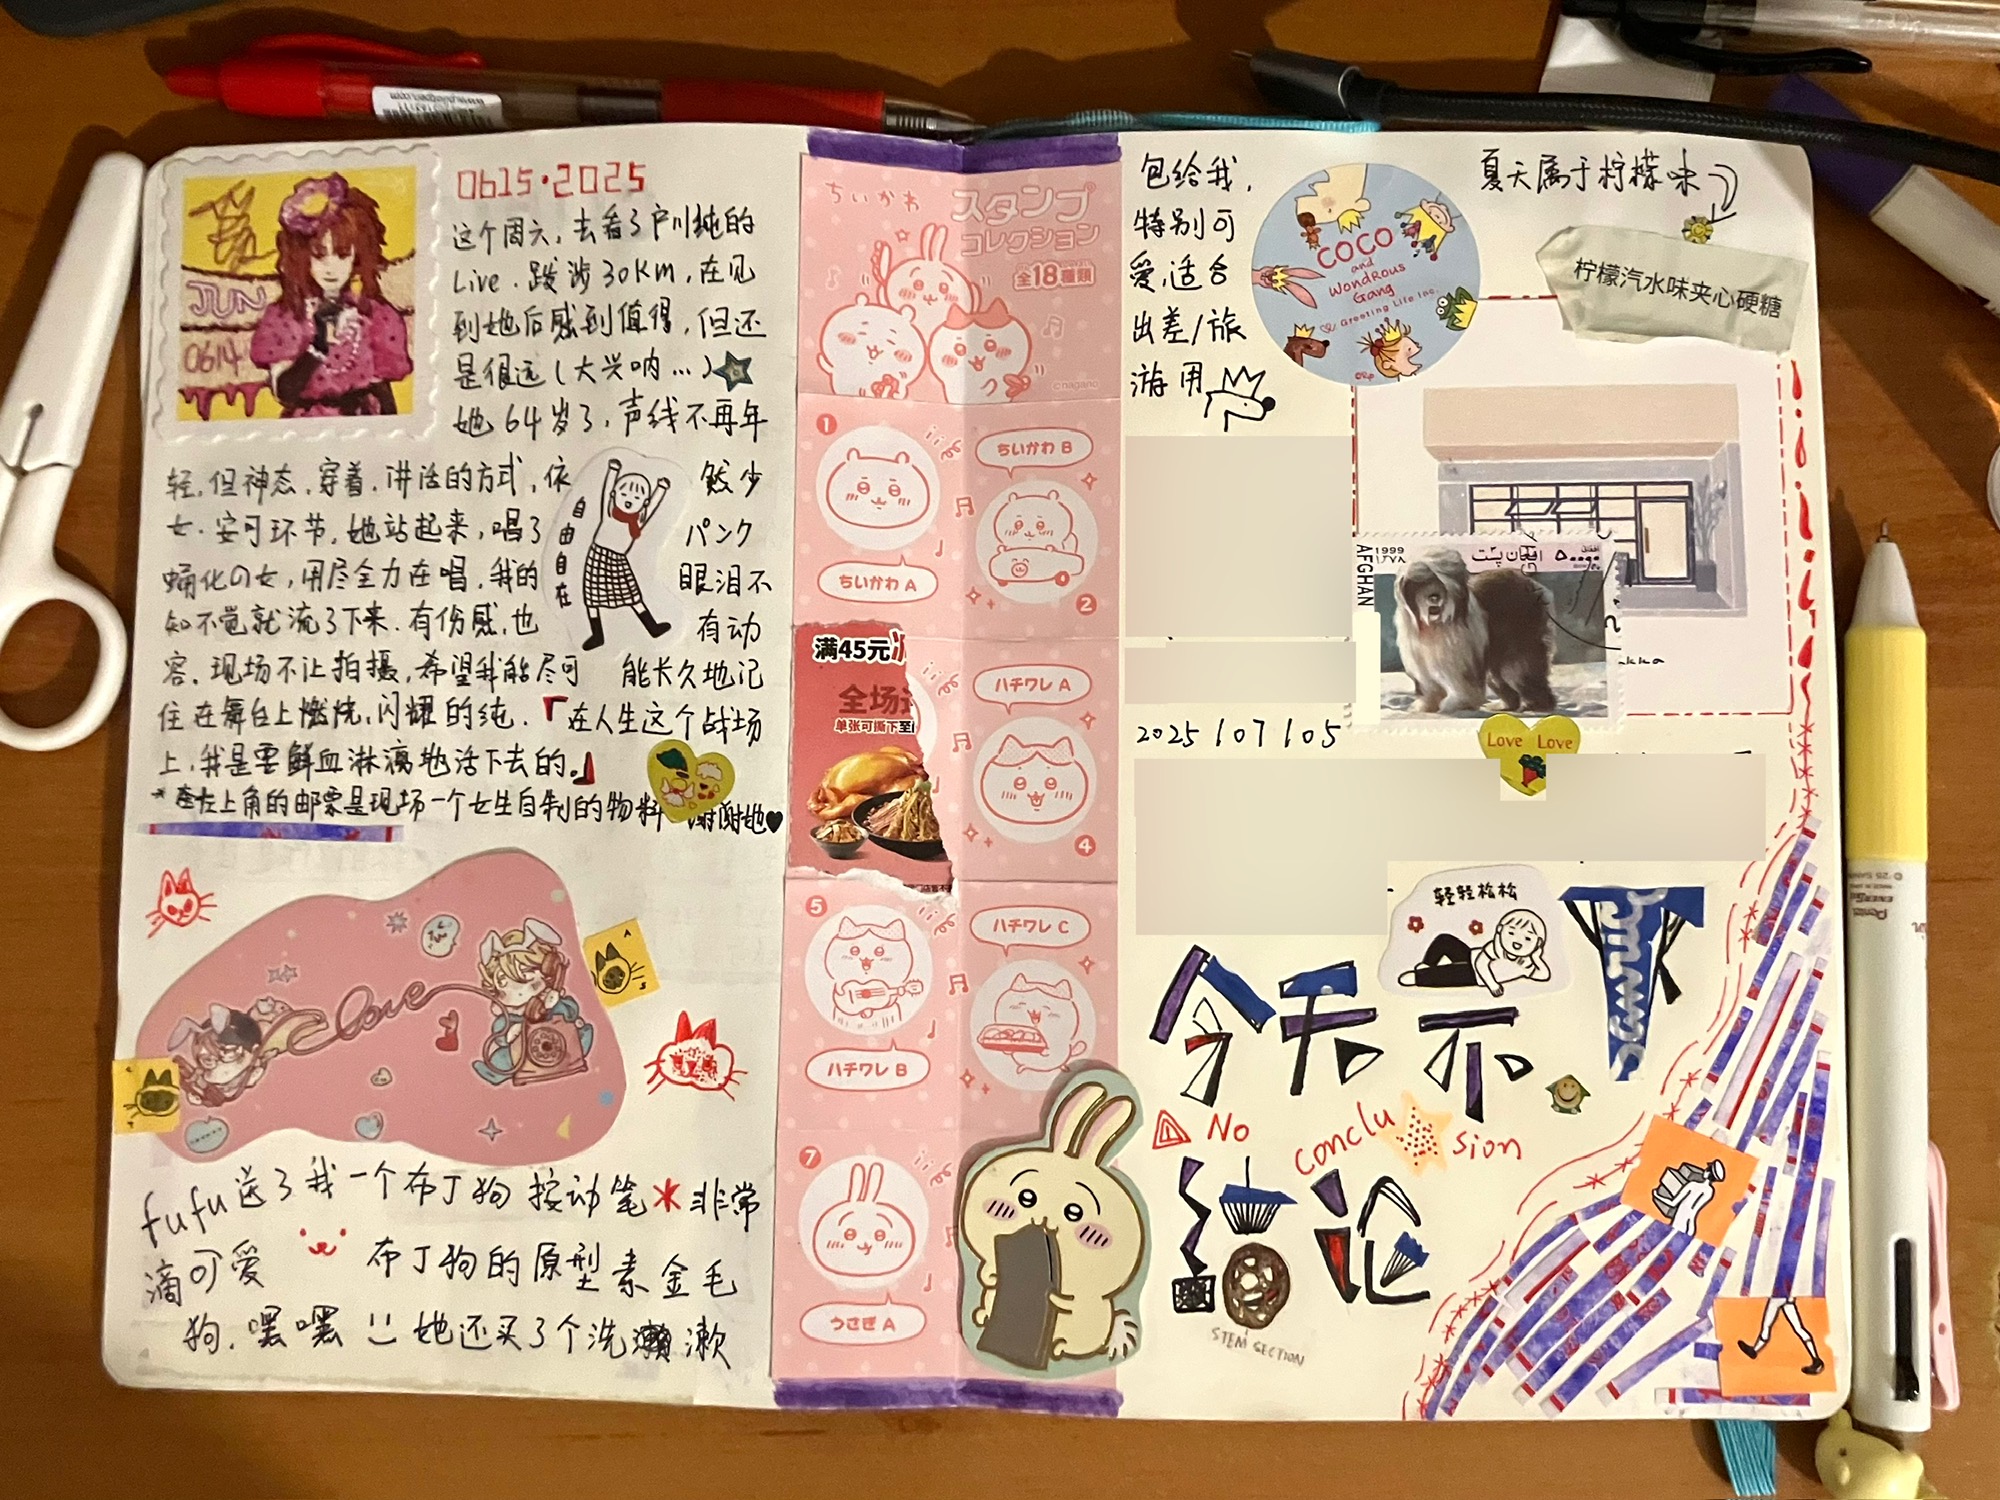 0615·2025
这个周六，去看了户川纯的
Live．跋涉30Km，在见
到她后感到值得，但还
是很远（大兴呐…）
她64岁了，声线不再年
轻，但神态，穿着，讲话的方式，依然少
女．安可环节，她站起来，唱了パンク
蛹化の女，用尽全力在唱，我的眼泪不
知不觉就流了下来．有伤感，也有动
容．现场不让拍摄，希望我能尽可能长久地记
住在舞台上燃烧，闪耀的纯．『在人生这个战场
上，我是要鲜血淋漓地活下去的。』
*左上角的邮票是现场一个女生自制的物料 谢谢她♥
JUN
0614
自由自在
love
fufu送了我一个布丁狗按动笔*非常
滴可爱 布丁狗的原型素金毛
狗．嘿嘿 她还买了个洗漱
ちいかわ
スタンプ
コレクション
全18種類
©nagano
1
ちいかわ A
ちいかわ B
2
满45元
全场
单张可撕下至
ハチワレ A
4
5
ハチワレ B
ハチワレ C
7
うさぎ A
包给我，
特别可
爱，适合
出差/旅
游用
COCO
and
WondRous
Gang
Greeting Life Inc.
夏天属于柠檬味
柠檬汽水味夹心硬糖
1999
AFGHAN
2025107105
Love Love
轻轻松松
今天不
No
conclu sion
结论
STEM SECTION